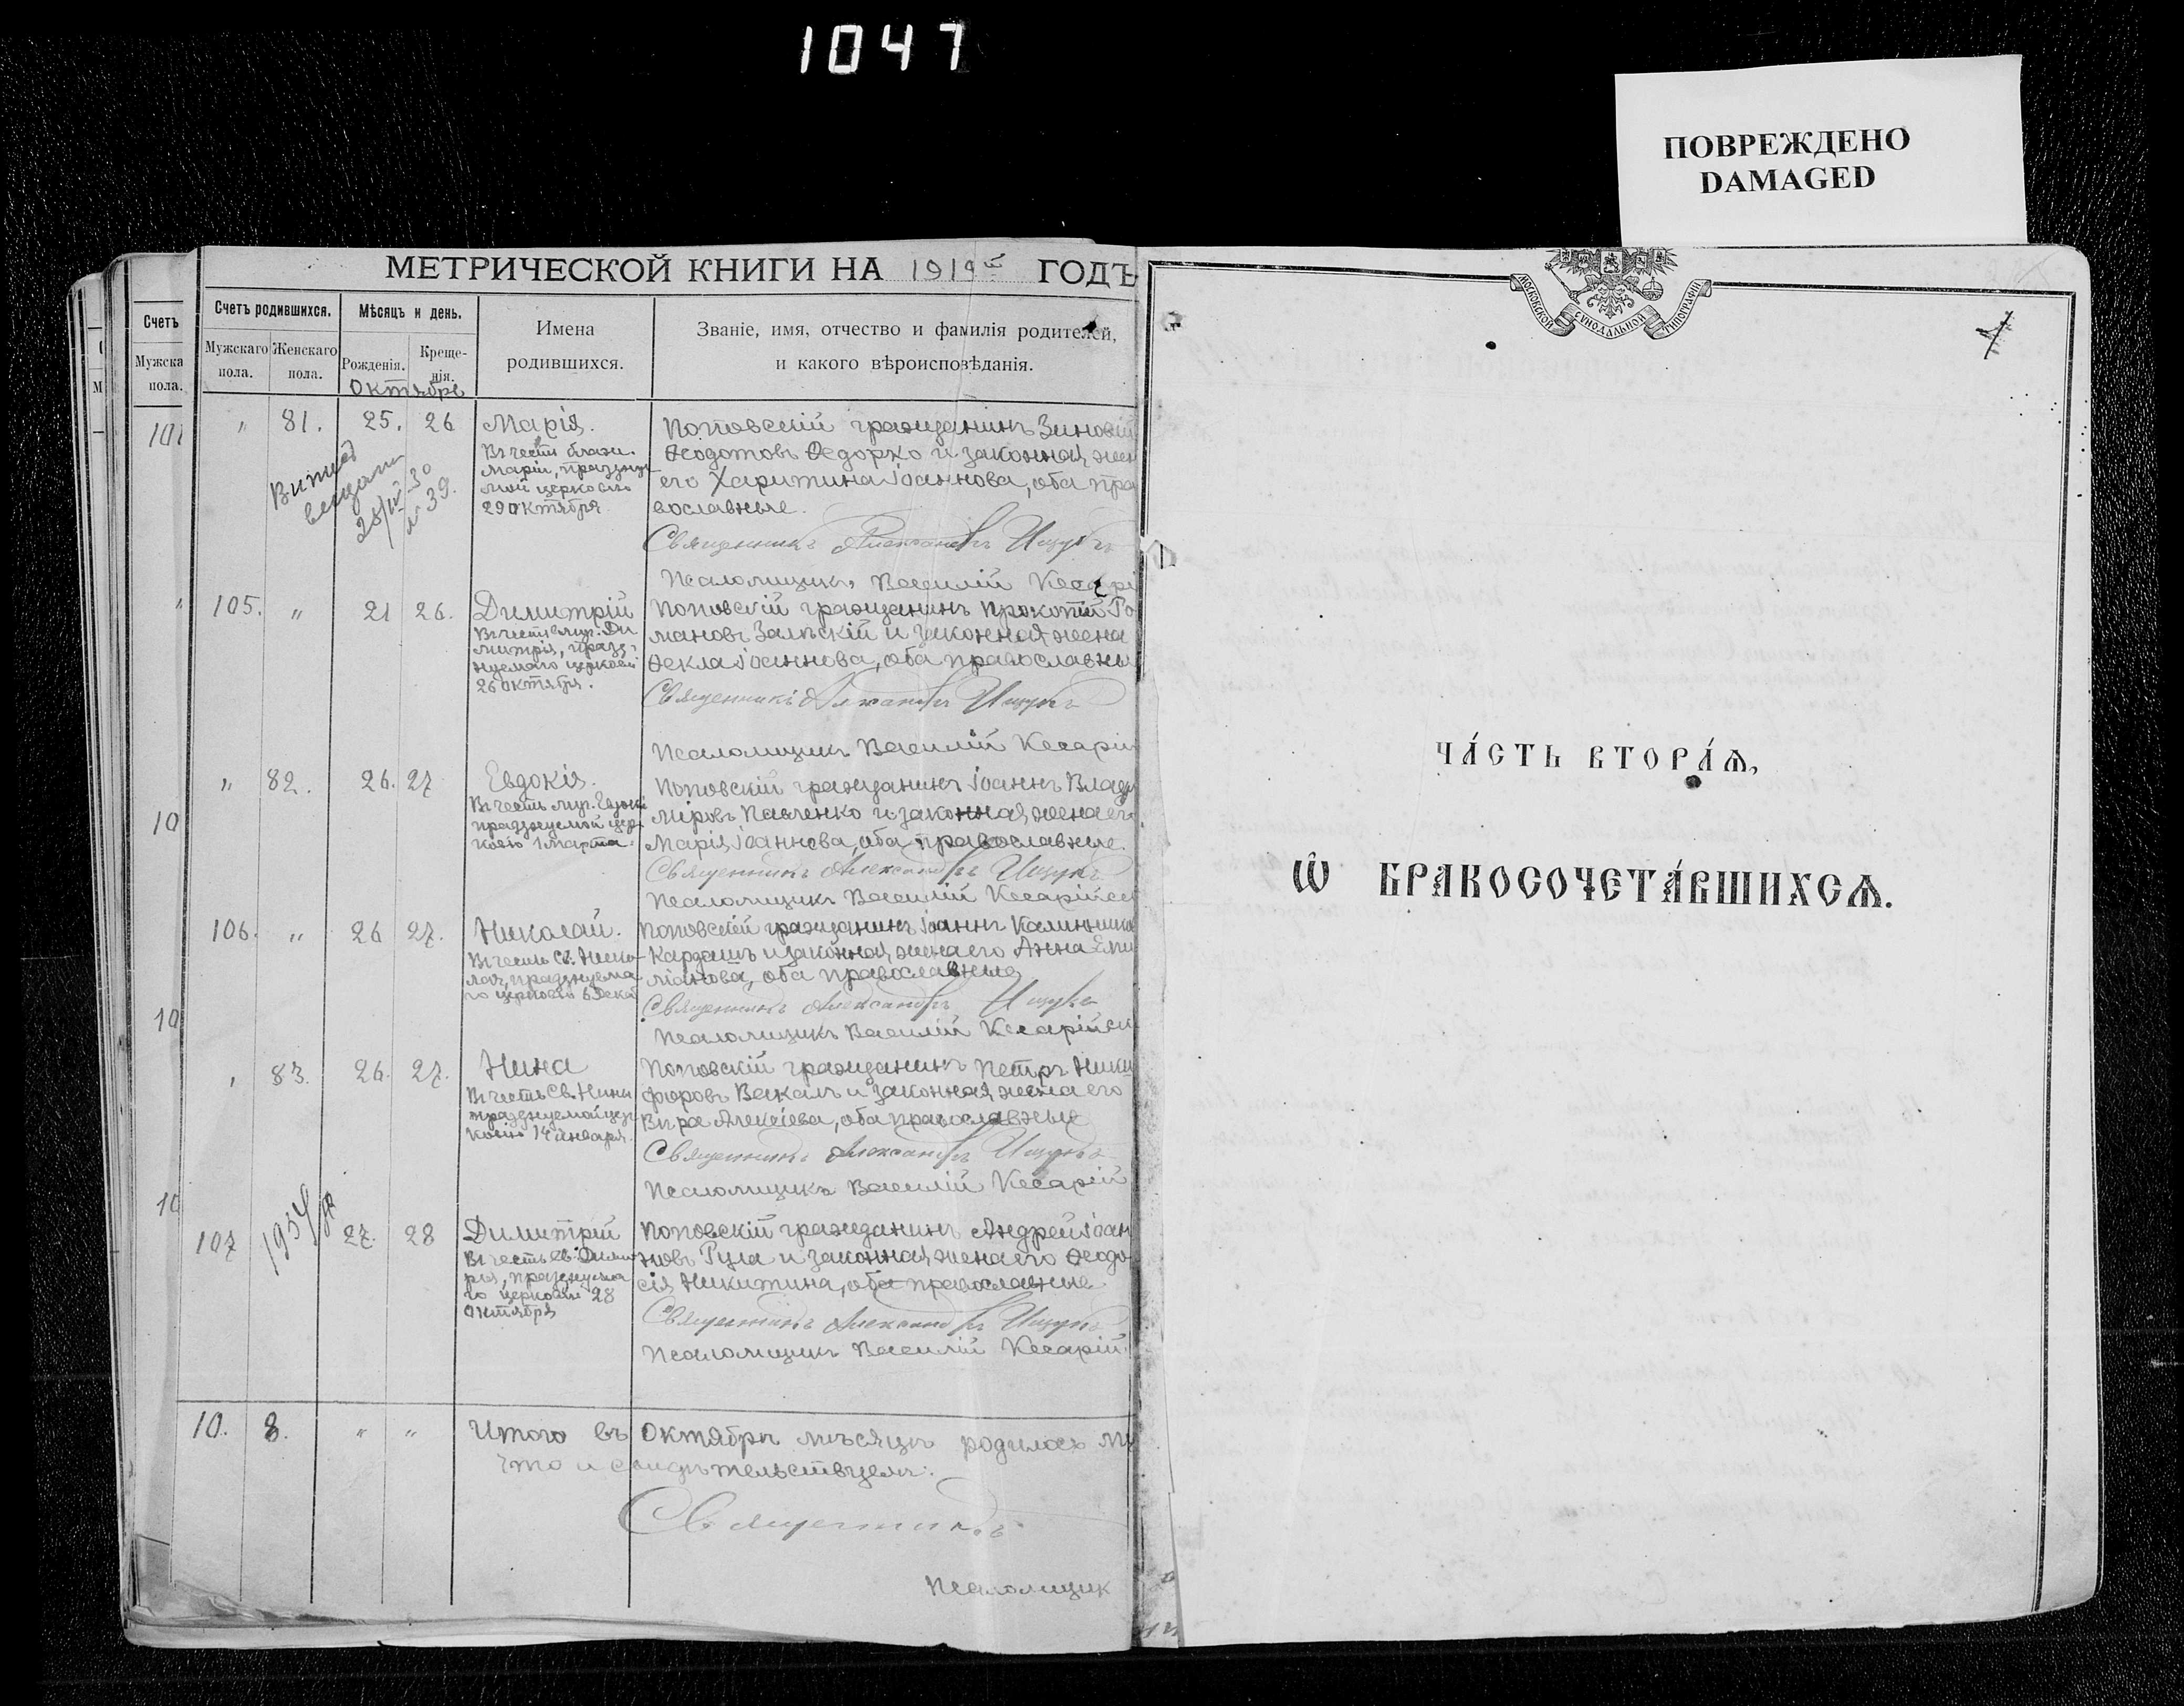 1047
ПОВРЕЖДЕНО
DAMAGED
МЕТРИЧЕСКОЙ КНИГИ НА 1919й ГОДЪ
Счетъ
Мужска
пола.
Счетъ родившихся.
Мѣсяцъ и день.
Имена
родившихся.
Званіе, имя, отчество и фамилія родителей,
и какого вѣроисповѣданія.
Мужскаго
пола.
Женскаго
пола.
Рожденія.
Креще-
нія.
Октябрь
101
" 81. 25. 26 Марія.
Въ честь блаж.
Маріи, празднуе
мой церковію
29 октября
Поповскій гражданинъ Зиновій
Ѳеодотовъ Ѳедорко и законная жен
его Харитина Іоаннова, оба пра
вославные.
Священникъ Александръ Ищукъ
Псаломщикъ Василій Кесарі
Витяг
28/IV 30
№ 39.
105. " 21 26. Димитрій
Въ честь влмуч. Ди
митрія, празд-
нуемаго церковію
26 октября.
Поповскій гражданинъ Прокопій Ро
мановъ Залѣскій и законная жена
Ѳекла Іоаннова, оба православны
Священникъ Александръ Ищукъ
Псаломщикъ Василій Кесарій
10
" 82. 26. 27 Евдокія.
Въ честь муч. Евдокі
празднуемой цер-
ковію 1 марта.
Поповскій гражданинъ Іоаннъ Влади
міровъ Павленко и законная жена его
Марія Іоаннова, оба православные.
Священникъ Александръ Ищукъ
Псаломщикъ Василій Кесарійск
106. " 26 27. Николай.
Въ честь Св. Нико-
лая, празднуема-
го церковію 6 Декаб
Поповскій гражданинъ Іоаннъ Калинник
Кардашъ и законная жена его Анна Еми
ліанова, оба православные
Священникъ Александръ Ищукъ
Псаломщикъ Василій Кесарійск
10
" 83. 26. 27. Нина
Въ честь Св. Нины
празднуемой цер-
ковію 14 января.
Поповскій гражданинъ Петръ Ники
форовъ Вакалъ и законная жена его
Вѣра Алексіева, оба православные
Священникъ Александръ Ищукъ
Псаломщикъ Василій Кесарій
10
107 27. 28 Димитрій
Въ честь св. Димит
рія, празднуема
го церковію 28
октября
Поповскій гражданинъ Андрей Іоан
новъ Гула и законная жена его Ѳеодо
сія Никитина, оба православные.
Священникъ Александръ Ищукъ
Псаломщикъ Василій Кесарій
10. 8. " " Итого въ Октябрѣ мѣсяцѣ родилось му
что и свидѣтельствуемъ:
Священникъ
Псаломщик
МОСКОВСКОЙ СѴНОДАЛЬНОЙ ТИПОГРАФІИ
ЧА́СТЬ ВТОРА́Ѧ,
Ѽ БРАКОСОЧЕТА́ВШИХСѦ.